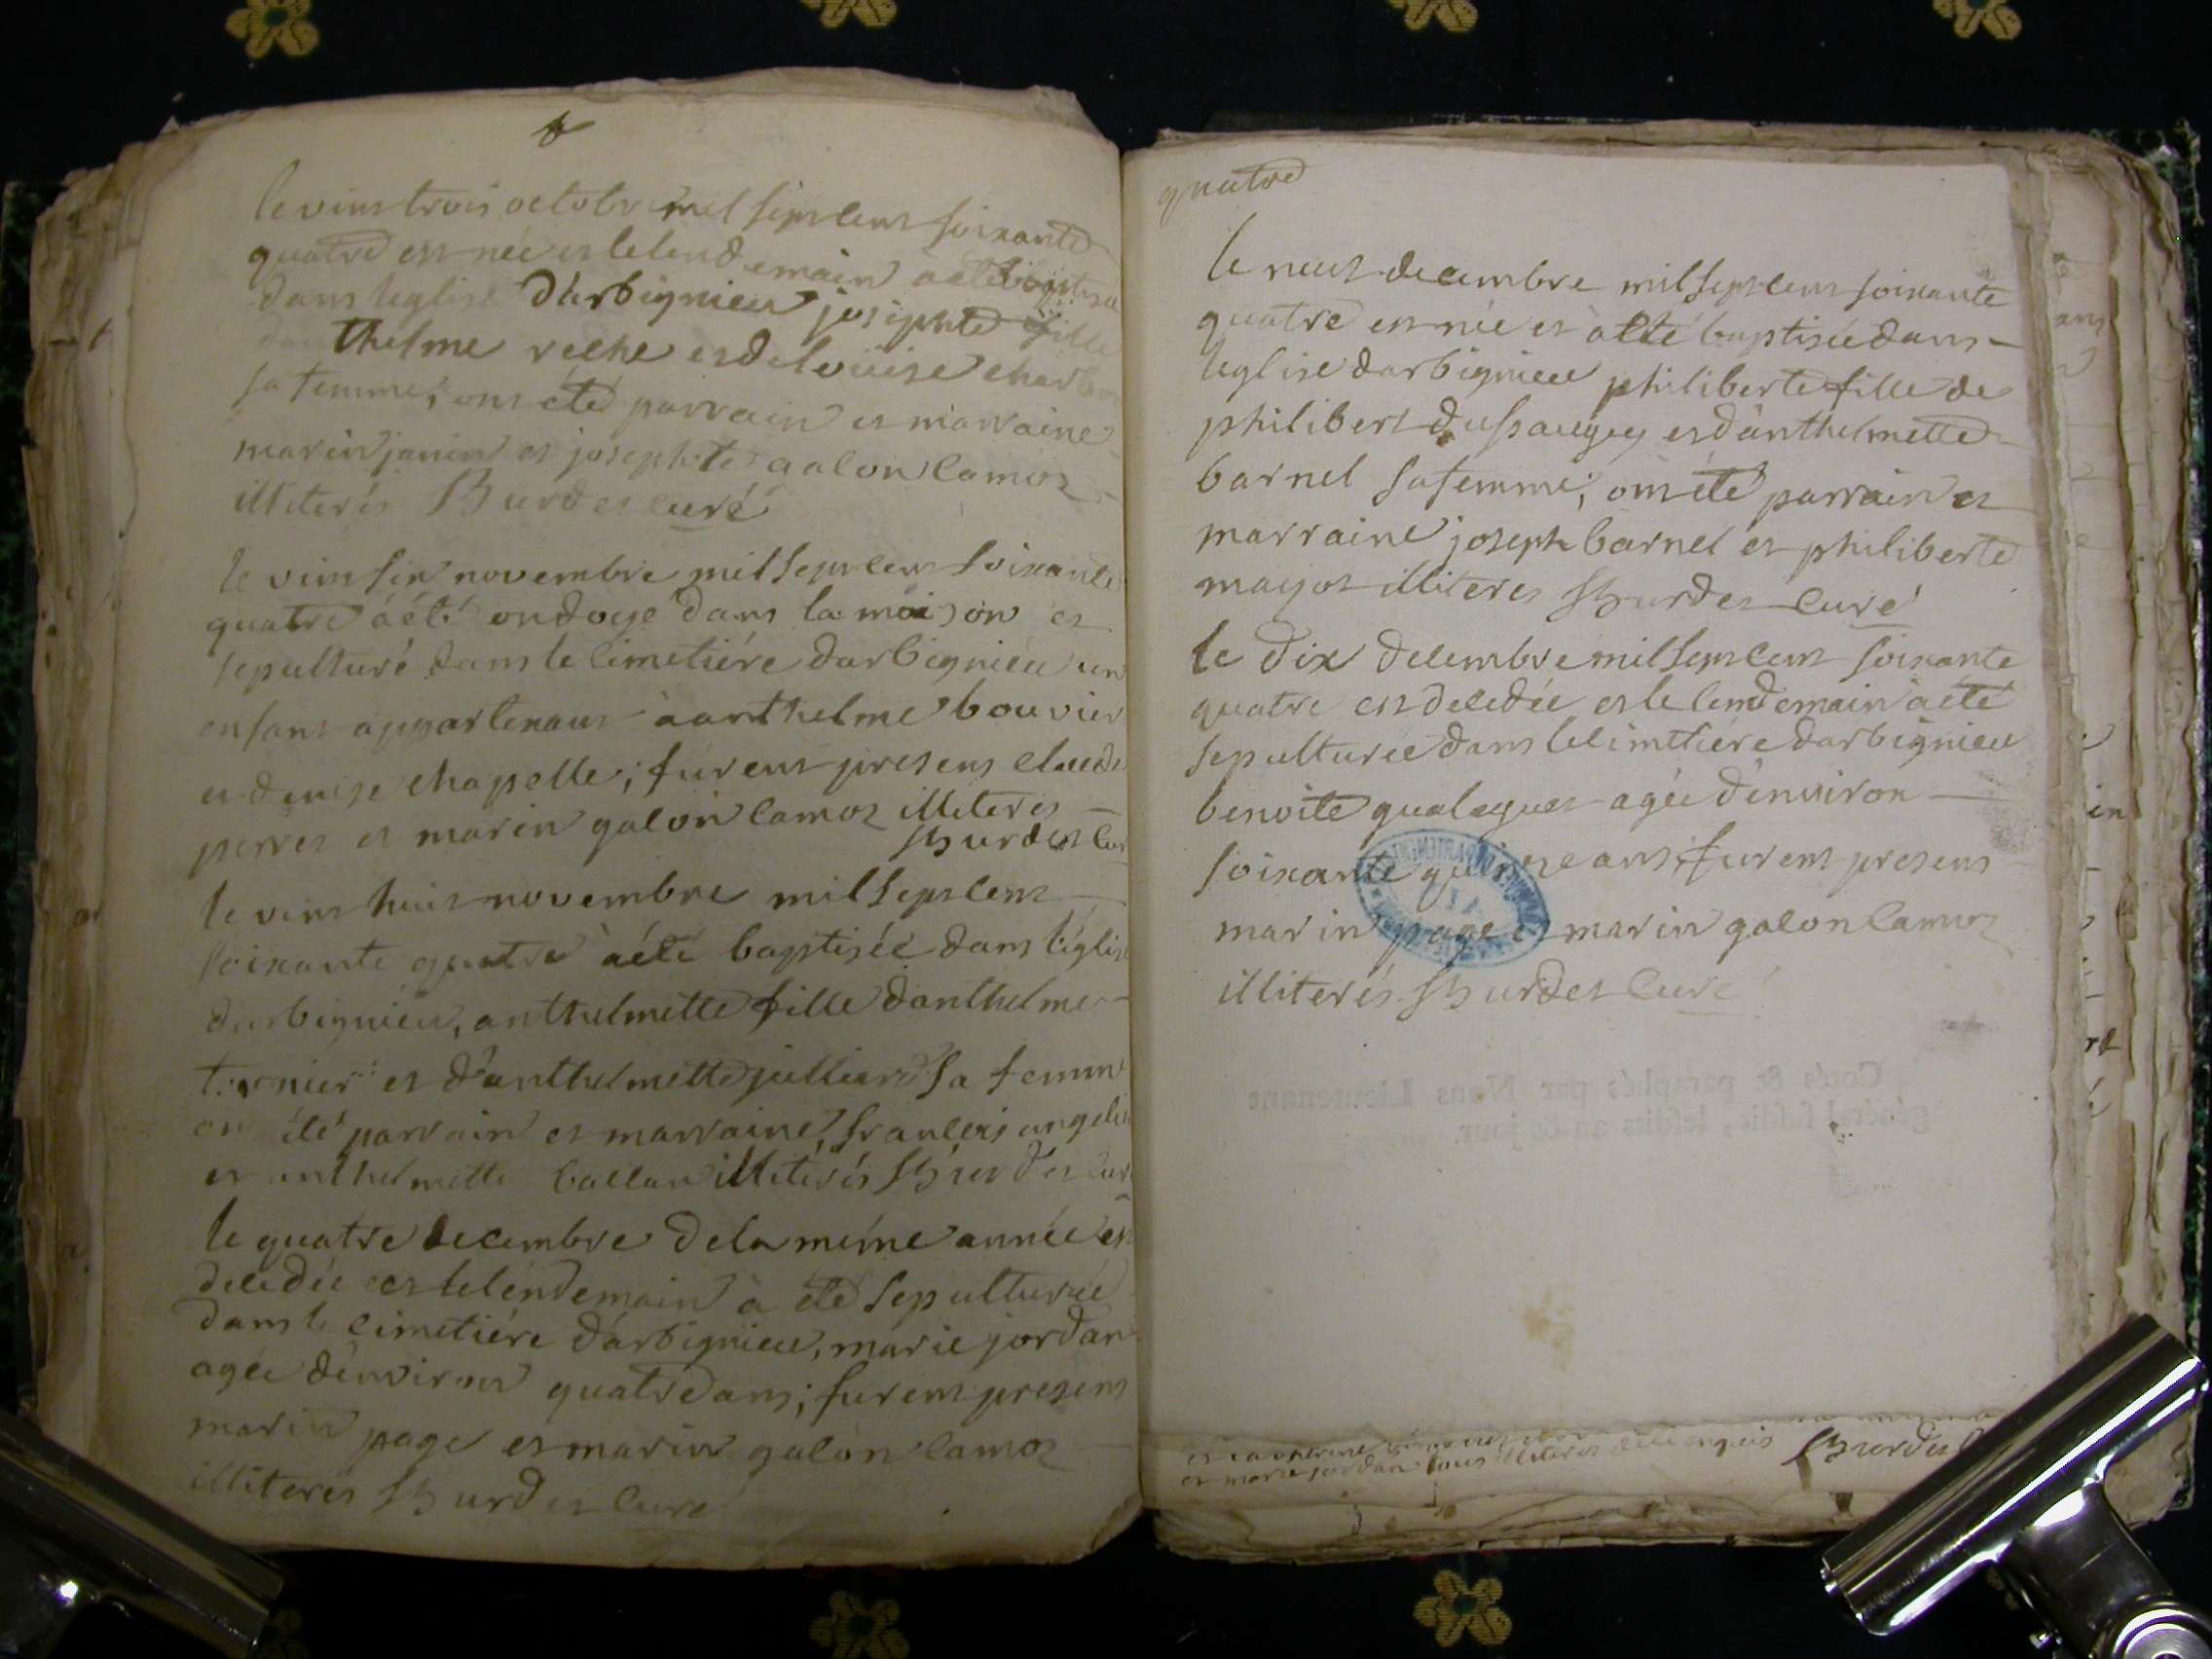 le vint trois octobre mil sept cent soixante
quatre est née et le lendemain a eté baptisée
dans leglise d'arbignieu josephte fille
thelme reche et de loüise
sa femme; ont été parrain et marraine
marin janin et josephte galon lamoz
illiterés Burdet curé
le vint six novembre mil sept cent soixante
quatre á été ondoyé dans la maison et
sepulturé dans le cimetiére darbignieu un
enfant appartenant à anthelme bouvier
et denise chapelle; furent presens claude
perret et marin galon lamoz illiteres
Burdet cur
le vint huit novembre mil sept cent
soixante quatre à été baptisée dans l'église
darbignieu, anthelmette fille danthelme
et d'anthelmette julliard sa femme
on été parrain et marraine, francois
et anthelmette ballan illitérés Burdet cur
le quatre decembre de la méme année est
decedée et le léndemain a eté sepulturée
dans le cimetiére d'arbignieu, marie jordan
agée d'environ quatre ans; furent presens
marin page et marin galon lamoz
illiterés Burdet curé
quatre
le neuf decembre mil sept cent soixante
quatre est née et a été baptisée dans
leglise darbignieu philiberte fille de
philibert dussaugey et d'anthelmette
barnel sa femme; ont été parrain et
marraine joseph barnel et philiberte
mayot illiteres Burdet curé
le dix decembre mil sept cent soixante
quatre est decedée et le lendemain a eté
sepulturée dans le cimetiére darbignieu
benoite agée d'environ
soixante quinze ans furent presens
marin page et marin galon lamoz
illiterés Burdet curé
Cotés & paraphés par Nous Lieutenant
général susdit, lesdits an & jour.
et marie jordan tous illiteres Burdet